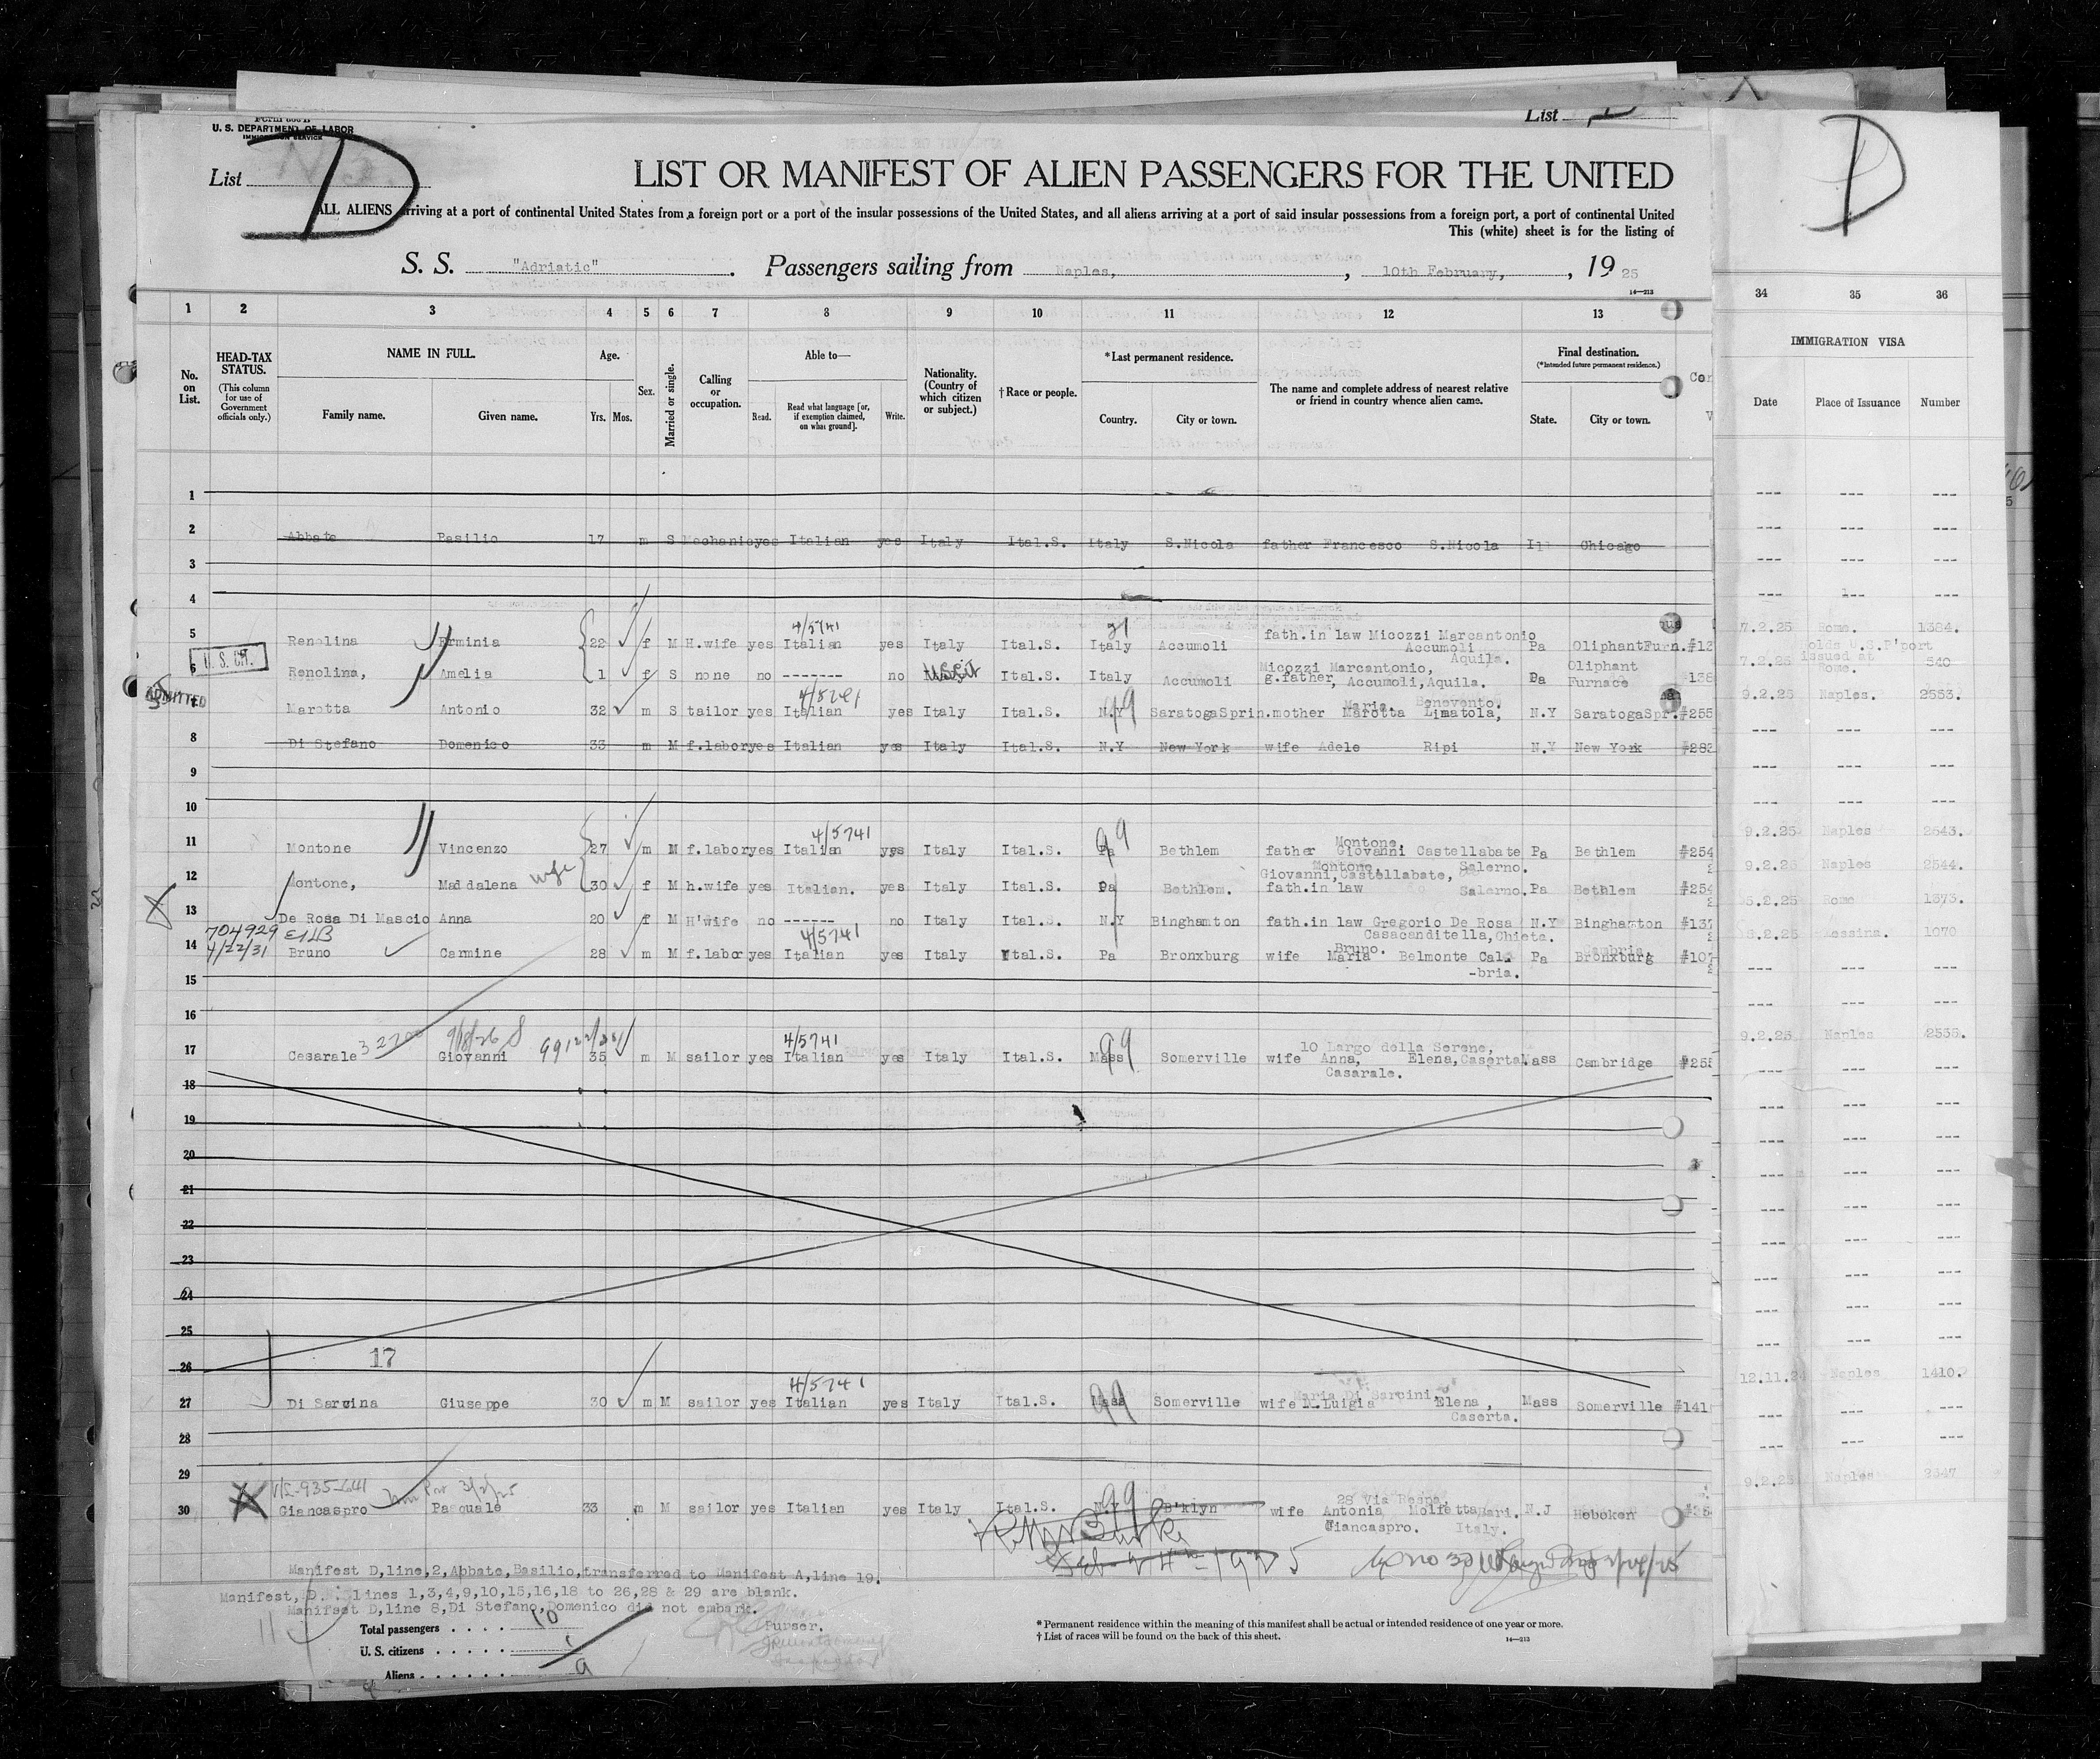 Form 500 B
U. S. DEPARTMENT OF LABOR
IMMIGRATION SERVICE
List
List D
D
LIST OR MANIFEST OF ALIEN PASSENGERS FOR THE UNITED
ALL ALIENS arriving at a port of continental United States from a foreign port or a port of the insular possessions of the United States, and all aliens arriving at a port of said insular possessions from a foreign port, a port of continental United
This (white) sheet is for the listing of
S. S. "Adriatic" . Passengers sailing from Naples, , 10th February, , 19 25
14—213
1 2 3 4 5 6 7 8 9 10 11 12 13 34 35 36
No. on List.
HEAD-TAX STATUS.
(This column for use of Government officials only.)
NAME IN FULL.
Family name. Given name.
Age.
Yrs. Mos.
Sex.
Married or single.
Calling or occupation.
Able to—
Read. Read what language [or, if exemption claimed, on what ground]. Write.
Nationality. (Country of which citizen or subject.)
† Race or people.
* Last permanent residence.
Country. City or town.
The name and complete address of nearest relative or friend in country whence alien came.
Final destination.
(*Intended future permanent residence.)
State. City or town.
IMMIGRATION VISA
Date Place of Issuance Number
1
2 Abbate Basilio 17 m S Mechanic yes Italian yes Italy Ital.S. Italy S.Nicola father Francesco S.Nicola Ill Chicago
3
4
4/5741 21
5 Renolina Erminia 22 f M H.wife yes Italian yes Italy Ital.S. Italy Accumoli fath.in law Micozzi Marcantonio Accumoli Aquila. Pa OliphantFurn. #13 7.2.25 Rome. 1384.
U. S. CIT.
6 Renolina, Amelia 1 f S none no ------- no USCit Ital.S. Italy Accumoli Micozzi Marcantonio, g.father, Accumoli,Aquila. Pa Oliphant Furnace 138 7.2.25 olds U.S.P'port issued at Rome. 540
ADMITTED
99
7 Marotta Antonio 32 m S tailor yes Italian yes Italy Ital.S. N.Y SaratogaSprin. mother Maria. Marotta Benevento. Limatola, N.Y SaratogaSpr. #255 9.2.25 Naples. 2553.
8 Di Stefano Domenico 33 m M f.labor yes Italian yes Italy Ital.S. N.Y New York wife Adele Ripi N.Y New York #282
9
10
4/5741 99
11 Montone Vincenzo 27 m M f.labor yes Italian yes Italy Ital.S. Pa Bethlem father Montone Giovanni Castellabate Salerno. Pa Bethlem #254 9.2.25 Naples 2543.
12 Montone, Maddalena wife 30 f M h.wife yes Italian. yes Italy Ital.S. Pa Bethlem. Montone, Giovanni,Castellabate, fath.in law Salerno. Pa Bethlem #254 9.2.25 Naples 2544.
13 De Rosa Di Mascio Anna 20 f M H'wife no ------ no Italy Ital.S. N.Y Binghamton fath.in law Gregorio De Rosa Casacanditella,Chieta. N.Y Binghamton #137 5.2.25 Rome 1373.
704929
4/22/31
4/5741
14 Bruno Carmine 28 m M f.labor yes Italian yes Italy Ital.S. Pa Bronxburg wife Bruno. Maria Belmonte Cal. -bria. Pa Cambria. Bronxburg #107 Messina. 1070
15
16
9/8/26 4/5741 99
17 Casarale Giovanni 35 m M sailor yes Italian yes Italy Ital.S. Mass Somerville wife 10 Largo della Serene, Anna, Elena,Caserta. Casarale. Mass Cambridge #255 9.2.25 Naples 2555.
18
19
20
21
22
23
24
25
26
17
4/5741 99
27 Di Sarcina Giuseppe 30 m M sailor yes Italian yes Italy Ital.S. Mass Somerville wife Maria Di Sarcini, M.Luigia Elena, Caserta. Mass Somerville #141 12.11.24 Naples 1410.
28
29
V/L-935-641
99
30 Giancaspro Pasquale 33 m M sailor yes Italian yes Italy Ital.S. N.Y B'klyn wife 28 Via Respa, Antonia Molfetta Bari. Giancaspro. Italy. N.J Hoboken 9.2.25 Naples 2547
Manifest D,line,2,Abbate,Basilio,transferred to Manifest A,line 19.
Manifest, D. lines 1,3,4,9,10,15,16,18 to 26,28 & 29 are blank.
Manifest D,line 8,Di Stefano,Domenico did not embark.
Total passengers . . . . 10
Purser.
U. S. citizens . . . . . 1
Aliens . . . . . . 9
* Permanent residence within the meaning of this manifest shall be actual or intended residence of one year or more.
† List of races will be found on the back of this sheet.
14—213